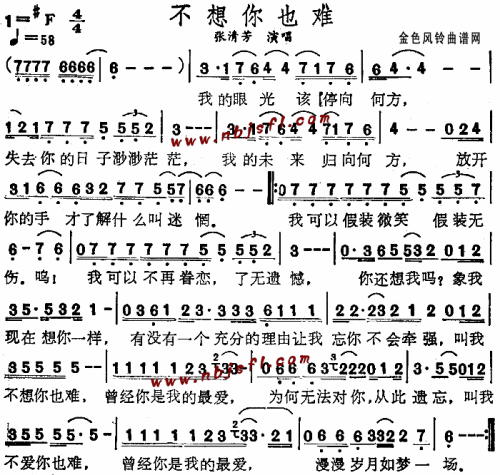 不想你也难
1=#F 4/4
♩=58
张清芳 演唱
金色风铃曲谱网
(7777 6666 6 - - -) 3·1764 47176 64·4 -
我的眼光 该停向 何方,
121777 5 552 3 - - - 3·1764 47176 4 - - 024
失去你的日子渺渺茫茫, 我的未来 归向何方, 放开
www.nbjsfl.com
316 6 632 77 557 66 - - 077777775 5557
你的手 才了解什么叫迷惘。 我可以假装微笑 假装无
6 - 76 077777755 552 3 - - - 0·3655532
伤。呜! 我可以不再眷恋, 了无遗憾, 你还想我吗?象我
35·5321 - 036123·333611 1 22·2321 2012
现在想你一样, 有没有一个充分的理由让我 忘你不会牵强,叫我
3555 5 - - 1111 12 33 - 066 332220 12 3·55012
不想你也难, 曾经你是我的最爱, 为何无法对你,从此遗忘,叫我
www.nbjsfl.com
3555 55·- 1111 12 33·21 066 63322 7 6 - -
不爱你也难, 曾经你是我的最爱, 漫漫岁月如梦一场。